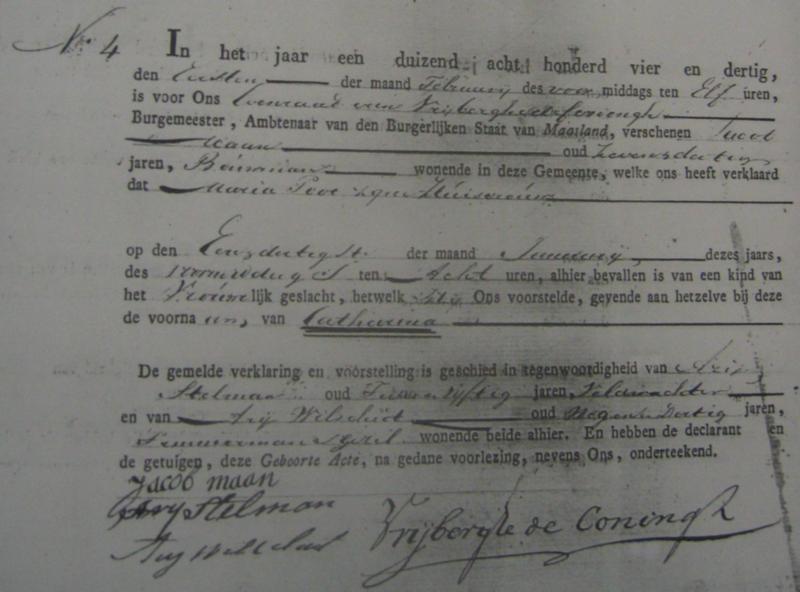 No. 4
In het jaar een duizend acht honderd vier en dertig,
den Eersten der maand February des voor middags ten Elf uren,
is voor Ons Coenraad van Vrijberghe de Coningh
Burgemeester, Ambtenaar van den Burgerlijken Staat van Maasland, verschenen Jacob
Maan oud Zevenendertig
jaren, Bouwman wonende in deze Gemeente, welke ons heeft verklaard
dat Maria zyne Huisvrouw
op den Eenendertigste der maand January dezes jaars,
des voormiddags ten Acht uren, alhier bevallen is van een kind van
het Vrouwelijk geslacht, hetwelk Ons voorstelde, gevende aan hetzelve bij deze
de voorna van Catharina
De gemelde verklaring en voorstelling is geschied in tegenwoordigheid van Arij
Stelman oud vyftig jaren, Veldwachter
en van Arij oud Negenendertig jaren,
Timmerman wonende beide alhier. En hebben de declarant en
de getuigen, deze Geboorte Acte, na gedane voorlezing, nevens Ons, onderteekend.
Jacob maan
Arij Stelman
Arij
Vrijberghe de Coningh